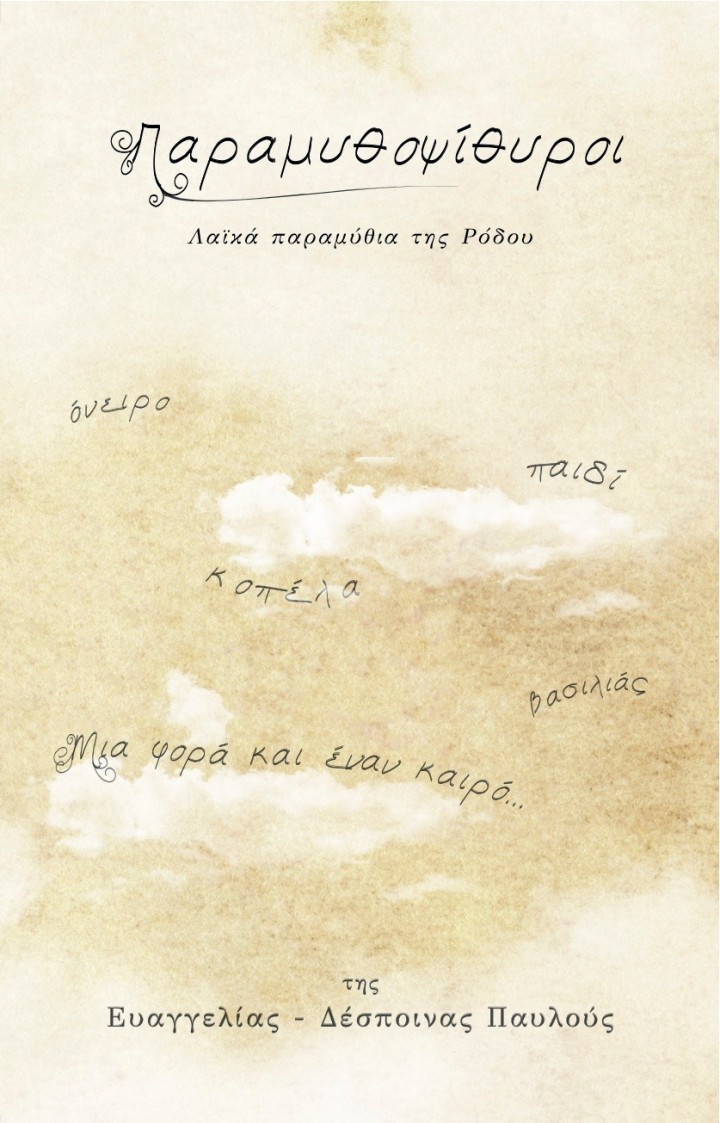 Παραμυθοψίθυροι
Λαϊκά παραμύθια της Ρόδου
όνειρο
παιδί
κοπέλα
βασιλιάς
Μια φορά και έναν καιρό...
της
Ευαγγελίας - Δέσποινας Παυλούς